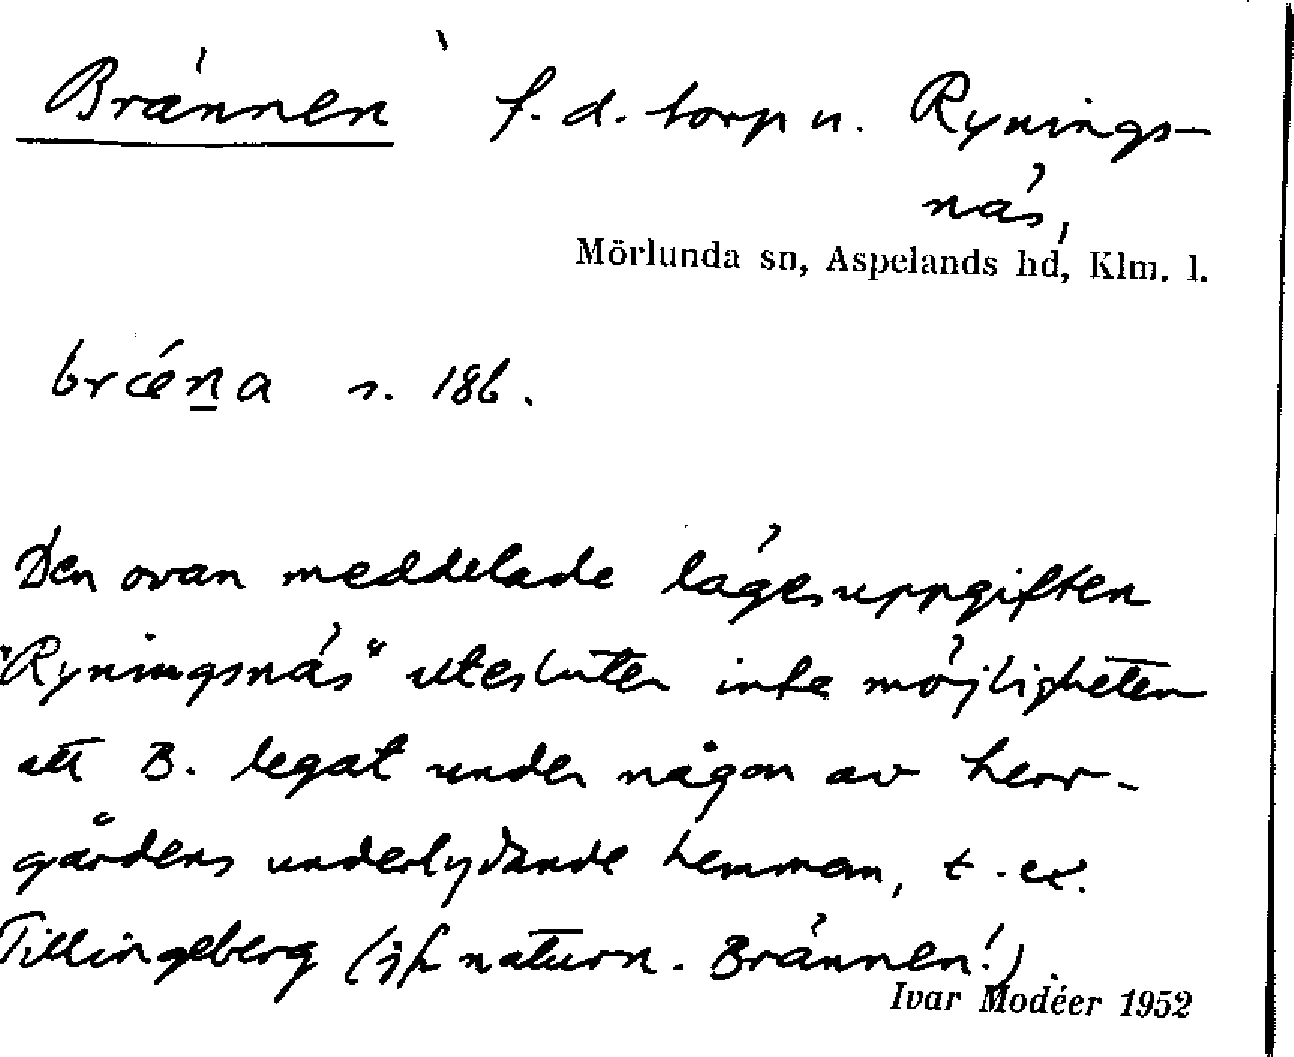 Brännen f.d. torp u. Rynings-
näs,
Mörlunda sn, Aspelands hd, Klm. l.
brǽn̲a s. 186.
Den ovan meddelade lägesuppgiften
"Ryningsnäs" utesluter inte möjligheten
att B. legat under någon av herr-
gårdens underlydande hemman, t. ex.
Tillingeberg (jfr naturn. Brännen!).
Ivar Modéer 1952